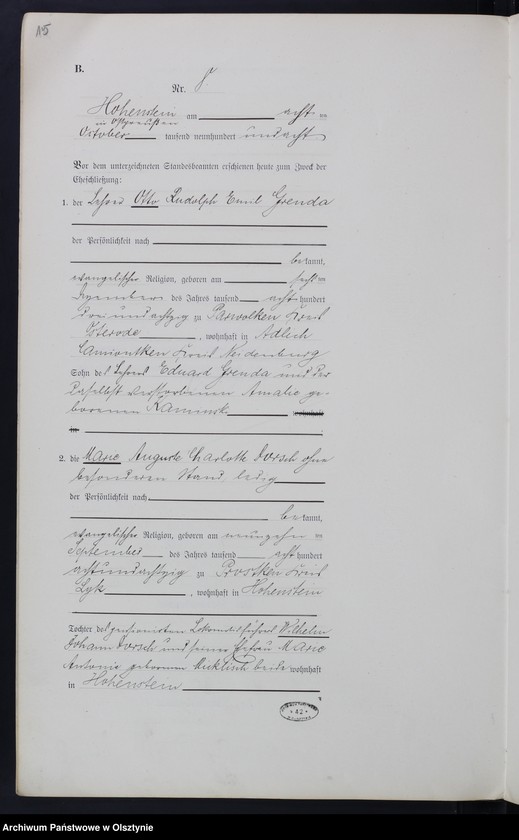 15
B.
Nr. 8
Hohenstein am acht
in Ostpreußen
October tausend neunhundert und acht
Vor dem unterzeichneten Standesbeamten erschienen heute zum Zweck der
Eheschließung:
1. der Lehrer Otto Rudolph Emil Grenda
der Persönlichkeit nach
bekannt,
evangelischer Religion, geboren am
des Jahres tausend acht hundert
drei und achtzig zu Parwolken Kreis
Osterode, wohnhaft in Adlich
Camiontken Kreis Neidenburg
Sohn des Lehrers Eduard Grenda und der
daselbst verstorbenen Amalie ge-
borenen wohnhaft
in
2. die Marie Auguste Charlotte Dorsch ohne
besonderen Stand, ledig
der Persönlichkeit nach
bekannt,
evangelischer Religion, geboren am neunzehn
September des Jahres tausend acht hundert
achtundachtzig zu Prostken Kreis
Lyk, wohnhaft in Hohenstein
Tochter des pensionirten Lokomotivführers Wilhelm
Johann Dorsch und seiner Ehefrau Marie
Antonie geborenen beide wohnhaft
in Hohenstein
42
Archiwum Państwowe w Olsztynie